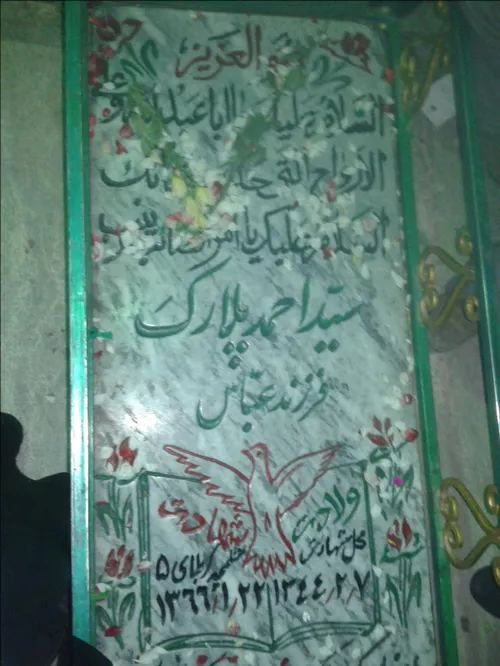 هو العزیز
السلام علیک یا اباعبدالله و
الارواح التی حلت
السلام علیک یا
سید احمد پلارک
فرزند عباس
ولادت شهادت
محل شهادت شلمچه کربلای ۵
۱۳۴۴/۲/۷ ۱۳۶۶/۱/۲۲